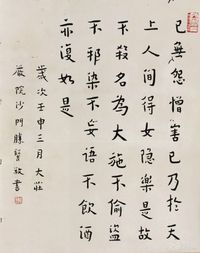 已無怨憎害已乃於天
上人間得安隱樂是故
不殺名為大施不偷盜
不邪染不妄語不飲酒
亦復如是
歲次壬申三月大莊
嚴院沙門勝髻敬書